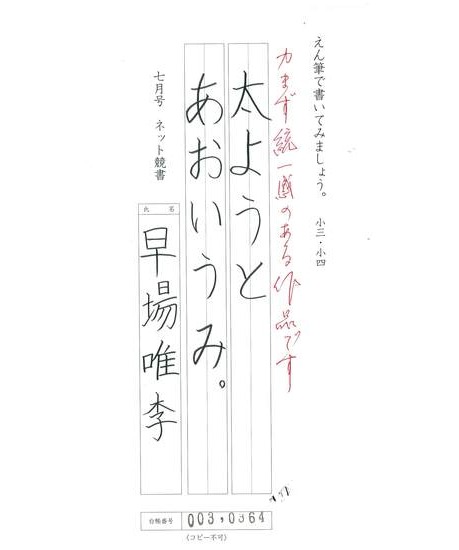 えん筆で書いてみましょう。 小三・小四
力まず統一感のある作品です
太ようと
あおいうみ。
七月号 ネット競書
氏名
早場唯李
台帳番号 003,0364
(コピー不可)